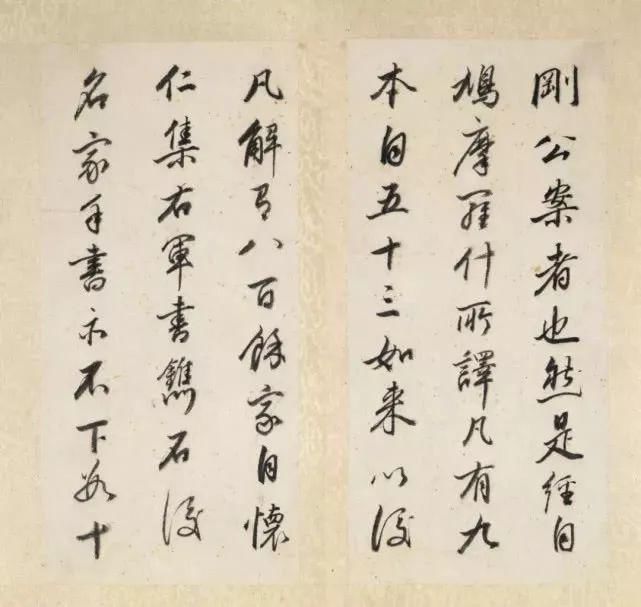 剛公案者也然是經自
鳩摩羅什所譯凡有九
本自五十三如来以後
凡解有八百餘家自懷
仁集右軍書鐫石後
名家手書亦不下數十